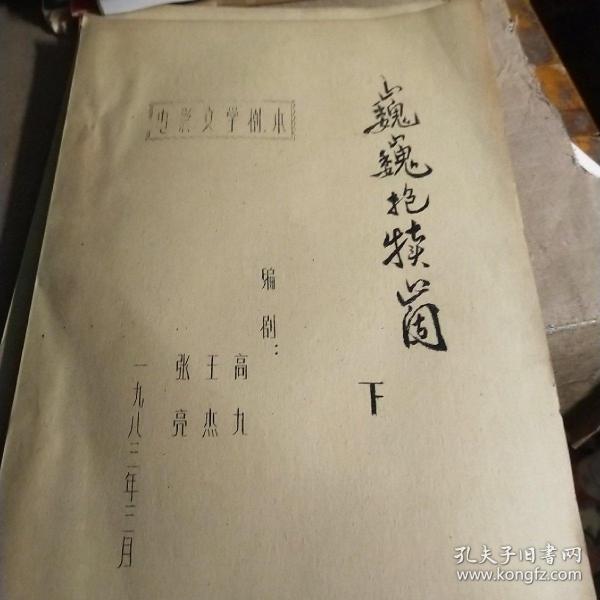 巍巍抱犊崮
下
电影文学剧本
编剧：
高九
王杰
张亮
一九八三年三月
孔夫子旧书网
www.kongfz.com